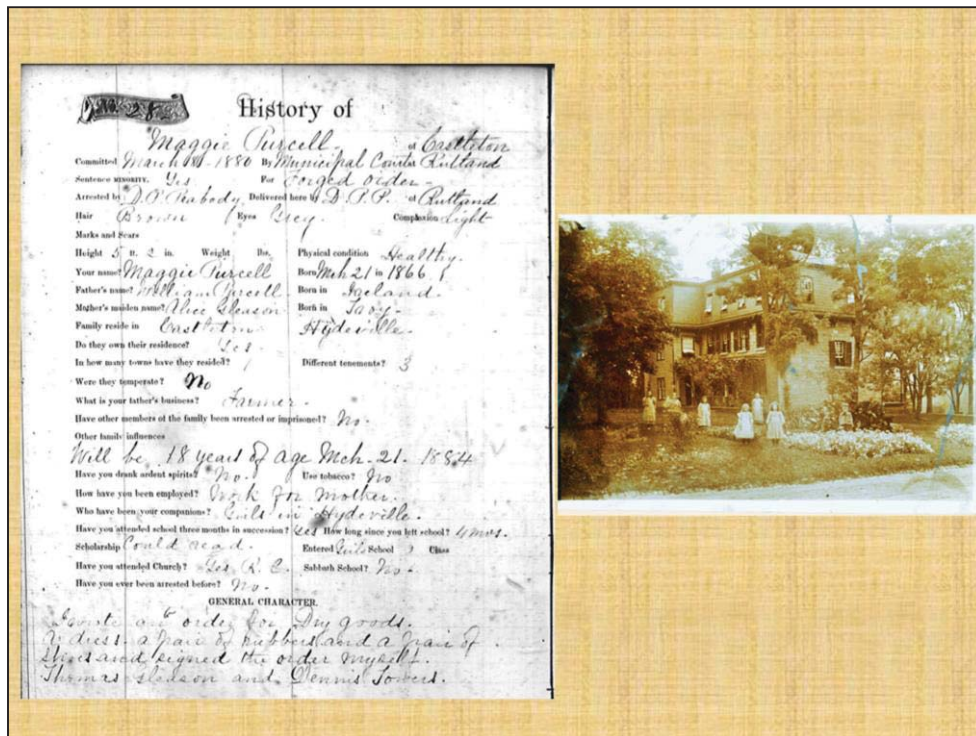 No. 282
History of
Maggie Purcell. of Castleton
Committed March 8 - 1880 By Municipal Court at Rutland
Sentence MINORITY. Yes For Forged order -
Arrested by D. P. Peabody Delivered here by D. P. P. of Rutland
Hair Brown Eyes Grey Complexion Light
Marks and Scars
Height 5 ft. 2 in. Weight lbs. Physical condition Healthy.
Your name? Maggie Purcell Born Mch 21 in 1866
Father's name? William Purcell. Born in Ireland.
Mother's maiden name? Alice Gleason Born in
Family reside in Castleton Hydeville.
Do they own their residence? Yes.
In how many towns have they resided? 1 Different tenements? 3
Were they temperate? No
What is your father's business? Farmer.
Have other members of the family been arrested or imprisoned? No.
Other family influences
Will be 18 years of age Mch. 21. 1884
Have you drank ardent spirits? No. Use tobacco? No
How have you been employed? Work for mother.
Who have been your companions? Girls in Hydeville.
Have you attended school three months in succession? Yes How long since you left school? 4 mos.
Scholarship Could read. Entered Girls School Class
Have you attended Church? Yes R. C. Sabbath School? No.
Have you ever been arrested before? No.
GENERAL CHARACTER.
I wrote an order for Dry goods.
A dress a pair of rubbers and a pair of
shoes and signed the order myself.
Thomas Gleason and Dennis Towers.